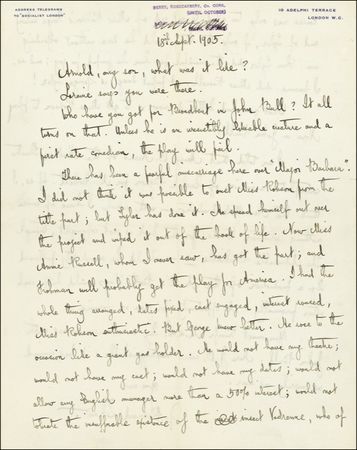 ADDRESS TELEGRAMS
TO "SOCIALIST LONDON"
DERRY, ROSSCARBERY, Co. CORK.
(UNTIL OCTOBER)
10 ADELPHI TERRACE
LONDON W.C.
18th Sept. 1905.
Arnold, my son, what was it like?
Loraine says you were there.
Who have you got for Broadbent in John Bull? It all
turns on that. Unless he is an irresistibly likeable creature and a
first rate comedian, the play will fail.
There has been a fearful miscarriage here over "Major Barbara."
I did not think it was possible to oust Miss Robson from the
title part; but Tyler has done it. He spread himself out over
the project and wiped it out of the book of life. Now Miss
Annie Russell, whom I never saw, has got the part; and
Frohman will probably get the play for America. I had the
whole thing arranged, dates fixed, cast engaged, interest roused,
Miss Robson enthusiastic. But George knew better. He rose to the
occasion like a giant gas holder. He would not have my theatre;
would not have my cast; would not have my dates; would not
allow any English manager more than a 50% interest; would not
tolerate the insufferable existence of the insect Vedrenne, who of